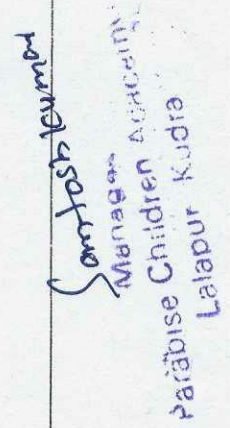 Samtosh kumar
Manager
Paradise Children Academy
Lalapur Kudra